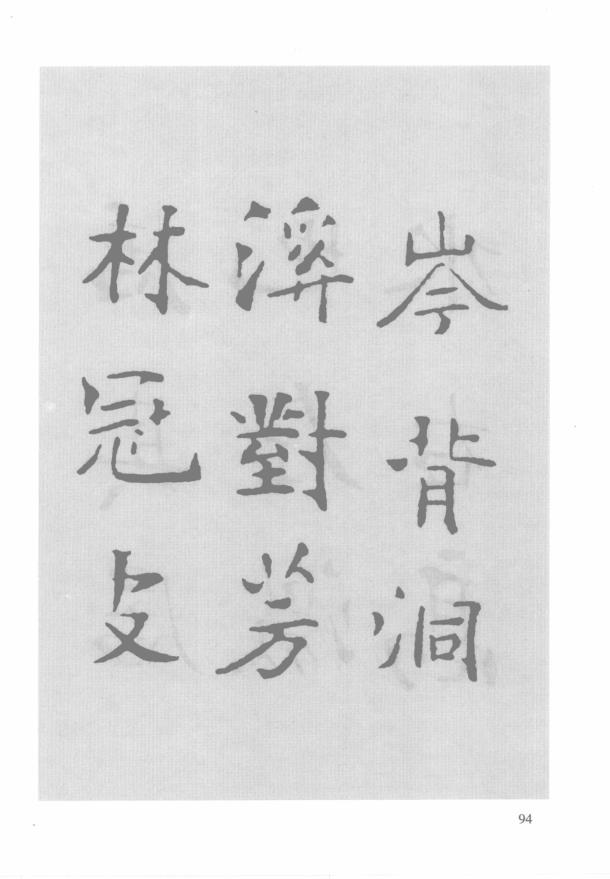 岑背洞
溪對芳
林冠皮
94